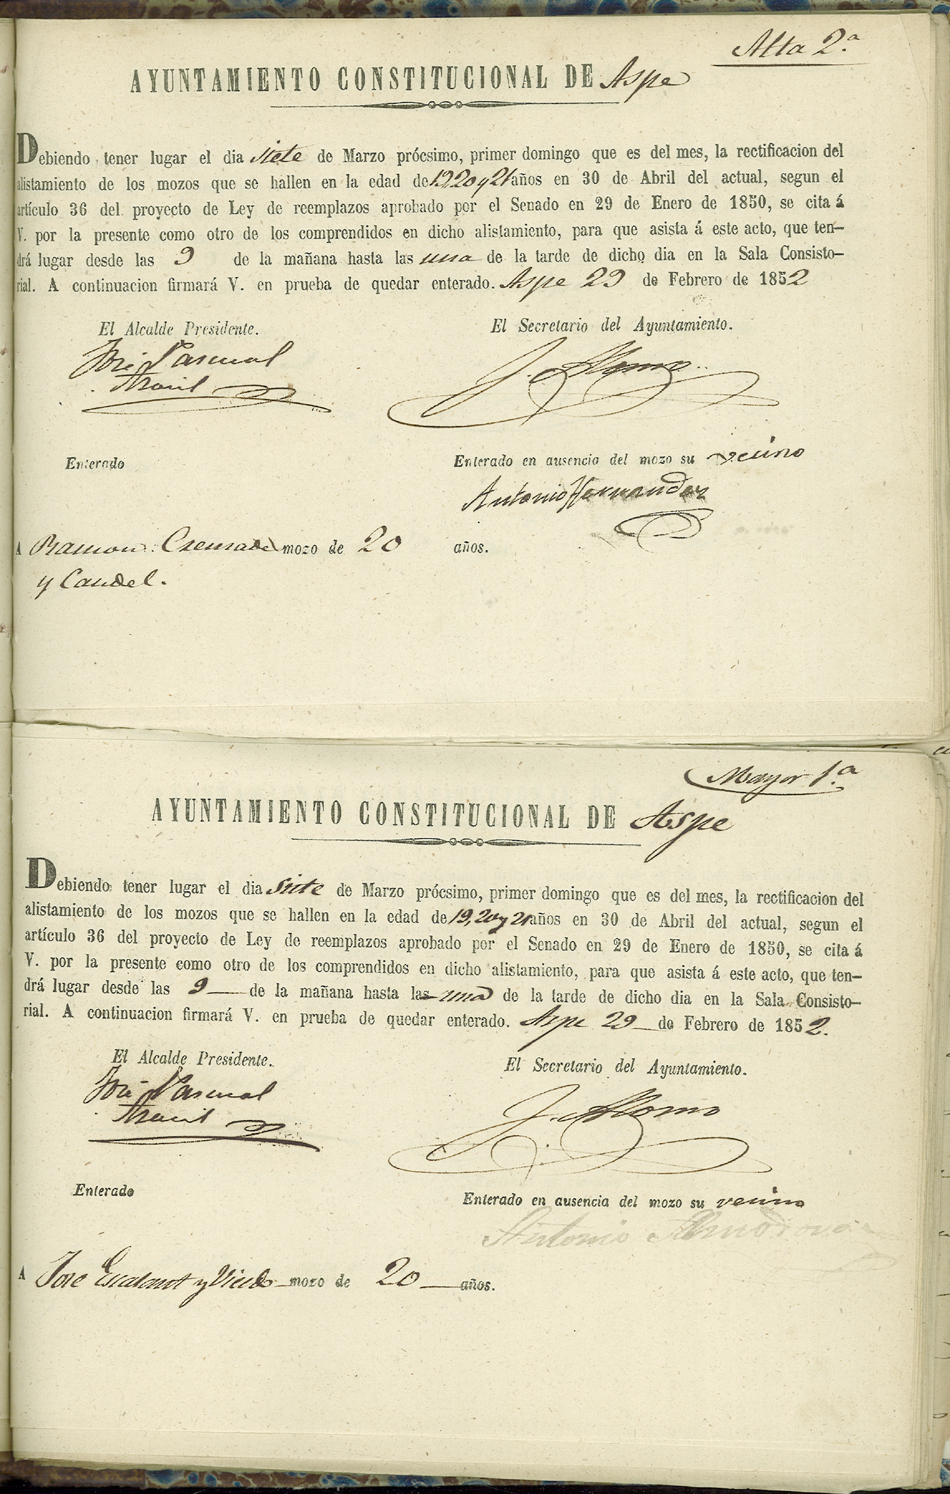 Alta 2.ª
AYUNTAMIENTO CONSTITUCIONAL DE Aspe
Debiendo tener lugar el dia siete de Marzo prócsimo, primer domingo que es del mes, la rectificacion del
alistamiento de los mozos que se hallen en la edad de 19 20 y 21 años en 30 de Abril del actual, segun el
artículo 36 del proyecto de Ley de reemplazos aprobado por el Senado en 29 de Enero de 1850, se cita á
V. por la presente como otro de los comprendidos en dicho alistamiento, para que asista á este acto, que ten–
drá lugar desde las 9 de la mañana hasta las una de la tarde de dicho dia en la Sala Consisto–
rial. A continuacion firmará V. en prueba de quedar enterado. Aspe 29 de Febrero de 1852
El Alcalde Presidente. El Secretario del Ayuntamiento.
José Pascual
Enterado Enterado en ausencia del mozo su vecino
Antonio Hernandez
A Ramon mozo de 20 años.
y Candel.
Mayor 1.ª
AYUNTAMIENTO CONSTITUCIONAL DE Aspe
Debiendo tener lugar el dia siete de Marzo prócsimo, primer domingo que es del mes, la rectificacion del
alistamiento de los mozos que se hallen en la edad de 19, 20 y 21 años en 30 de Abril del actual, segun el
artículo 36 del proyecto de Ley de reemplazos aprobado por el Senado en 29 de Enero de 1850, se cita á
V. por la presente como otro de los comprendidos en dicho alistamiento, para que asista á este acto, que ten–
drá lugar desde las 9 de la mañana hasta las una de la tarde de dicho dia en la Sala Consisto–
rial. A continuacion firmará V. en prueba de quedar enterado. Aspe 29 de Febrero de 1852.
El Alcalde Presidente. El Secretario del Ayuntamiento.
José Pascual
Enterado Enterado en ausencia del mozo su vecino
Antonio Almodovar
A José mozo de 20 años.